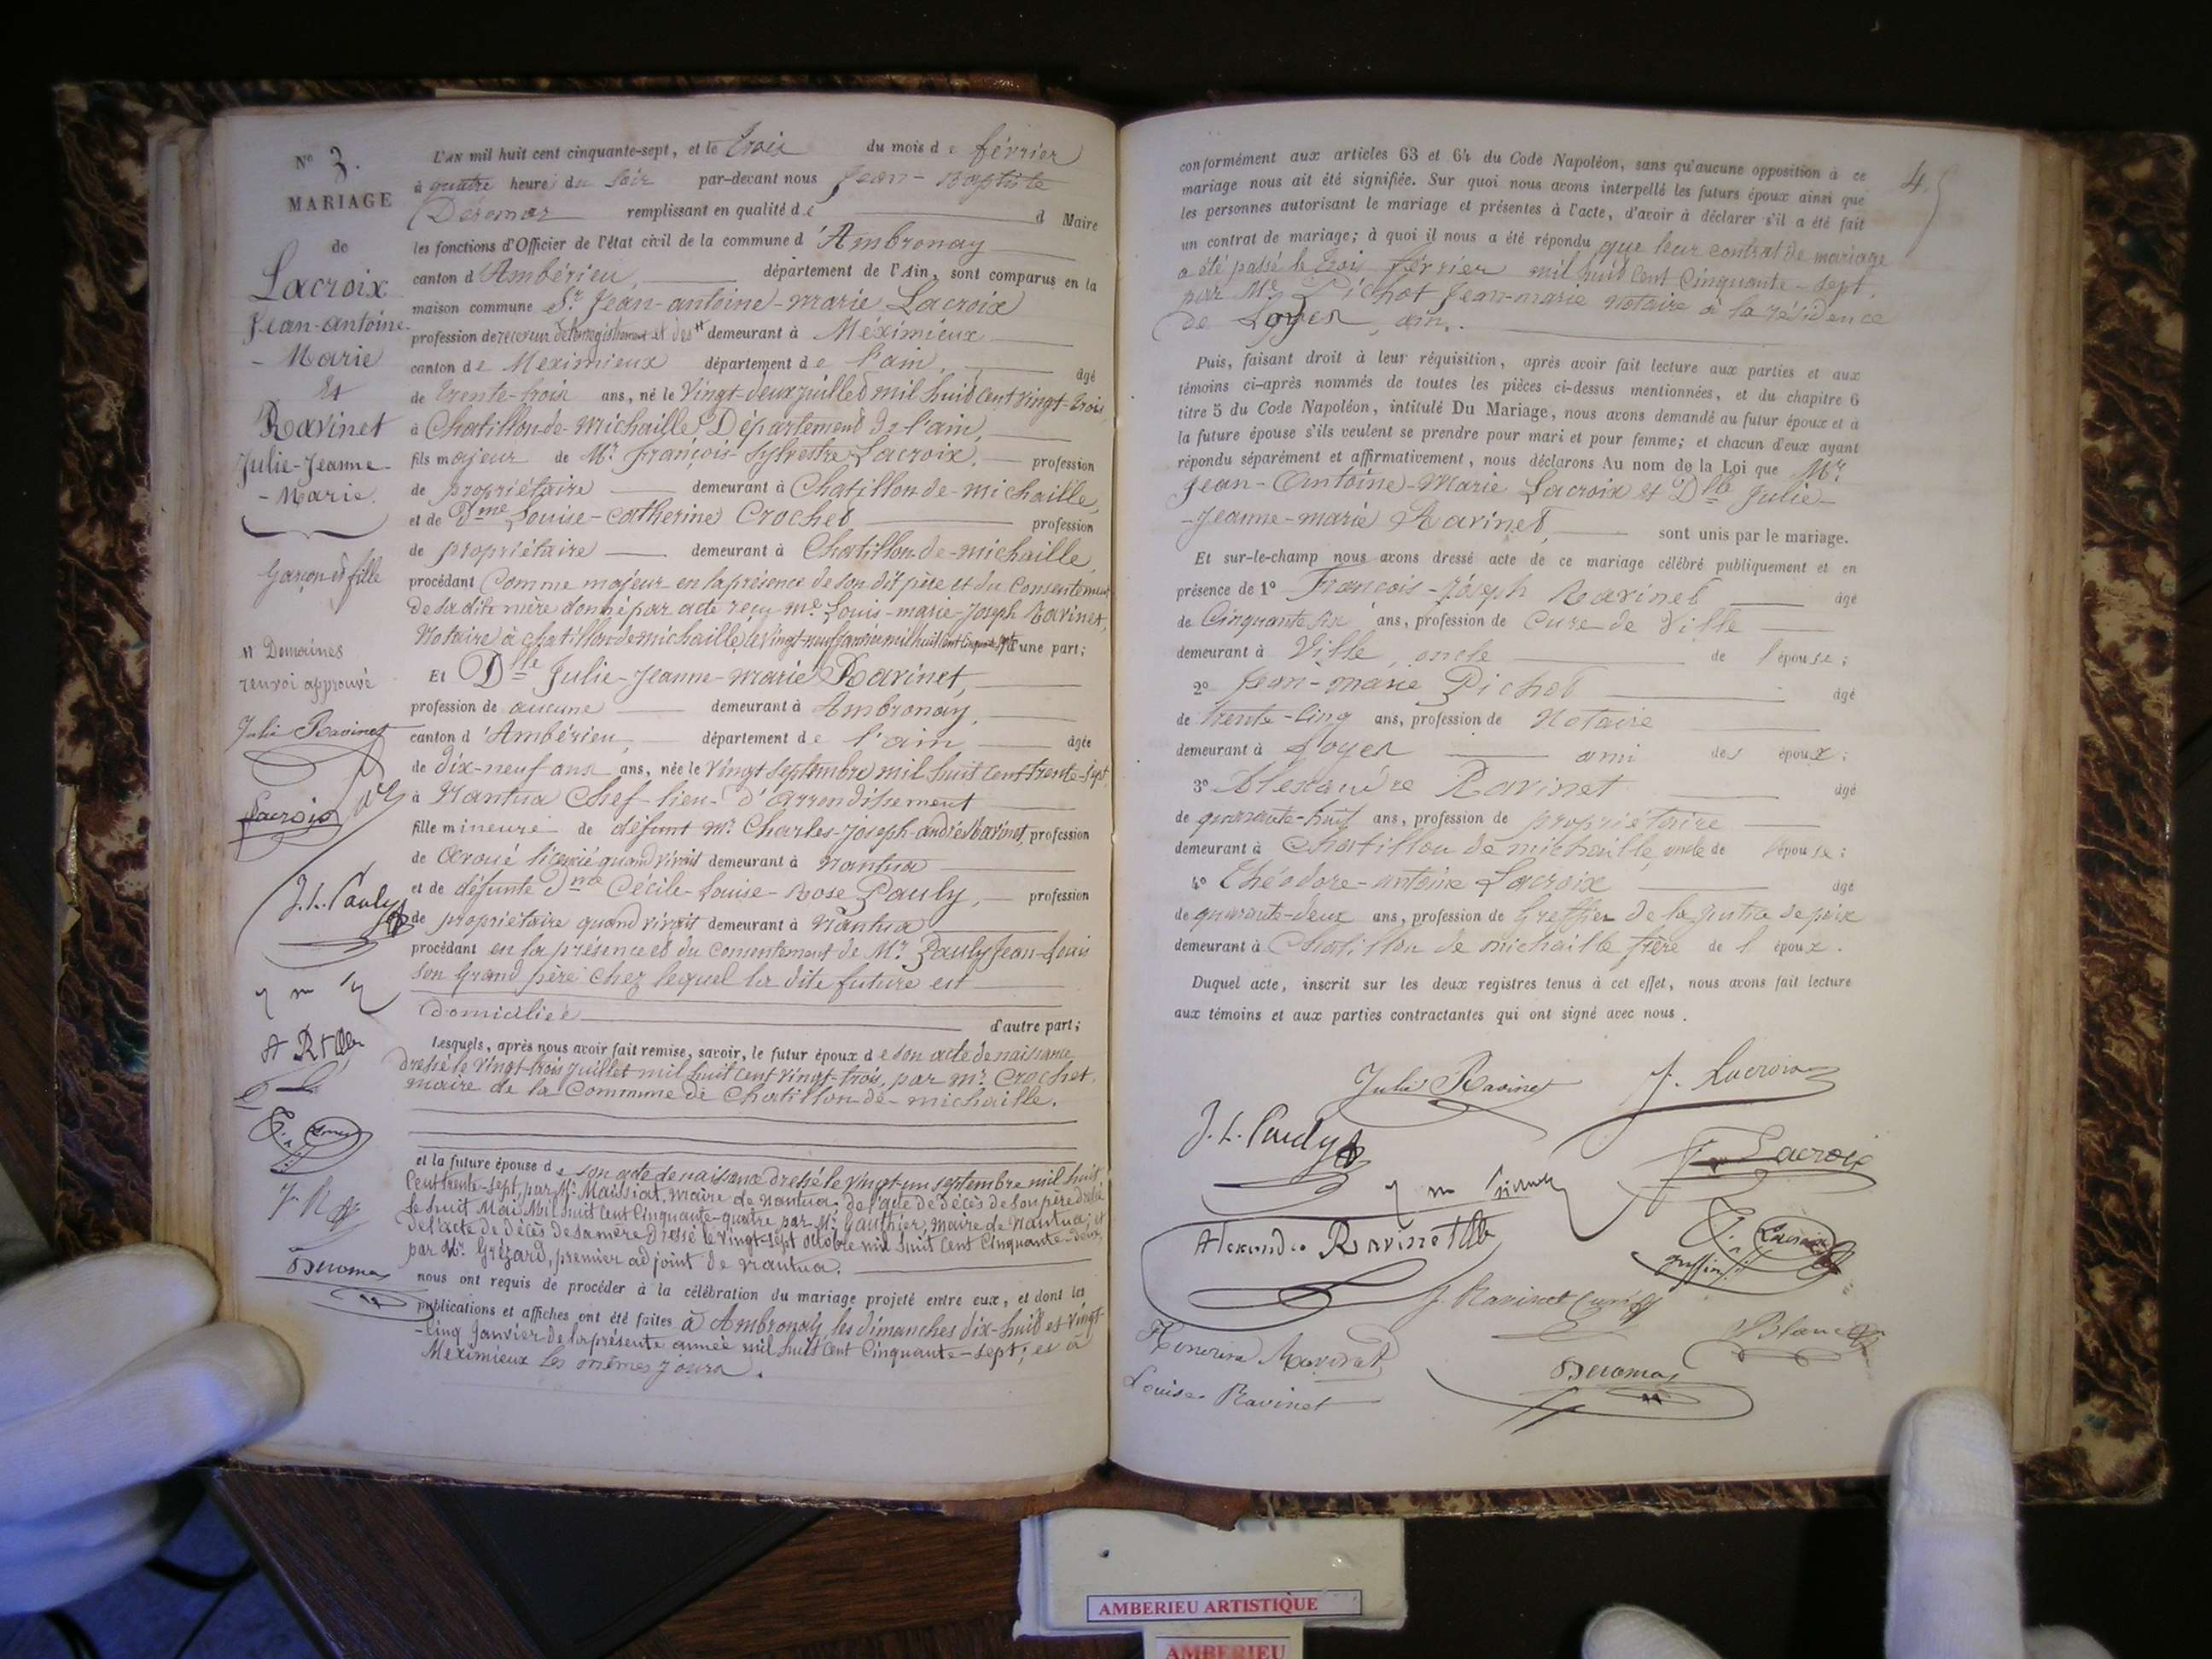 N° 3.
MARIAGE
de
Lacroix
Jean-antoine-
- Marie
et
Ravinet
Julie-Jeanne-
- Marie.
Garçon et fille
# Domaines
renvoi approuvé
Julie Ravinet
Lacroix
J. L. Pauly
Deromas
L'AN mil huit cent cinquante-sept, et le trois du mois de février
à quatre heures du soir par-devant nous Jean-Baptiste
Deromas remplissant en qualité de d Maire
les fonctions d'Officier de l'état civil de la commune d'Ambronay
canton d'Ambérieu, département de l'Ain, sont comparus en la
maison commune Sr. Jean-antoine-marie Lacroix
profession de receveur de l'enregistrement et des # demeurant à Méximieux
canton de Meximieux département de l'ain, âgé
de trente-trois ans, né le Vingt-deux juillet mil huit cent vingt-trois
à Chatillon-de-Michaille, Département de l'ain,
fils majeur de Mr. François-Sylvestre Lacroix, profession
de propriétaire demeurant à Chatillon-de-michaille,
et de Dme Louise-Catherine Crochet, profession
de propriétaire demeurant à Chatillon-de-michaille,
procédant Comme majeur en la présence de son dit père et du Consentement
de sa dite mère donné par acte reçu Me Louis-marie-Joseph Ravinet,
Notaire à chatillon de michaille, le vingt-neuf janvier mil huit cent cinquante-sept d'une part;
Et Dlle Julie-Jeanne-marie Ravinet,
profession de aucune demeurant à Ambronay,
canton d'Ambérieu, département de l'ain âgée
de dix-neuf ans ans, née le Vingt septembre mil huit cent trente-sept,
à Nantua Chef-lieu d'arrondissement
fille mineure de défunt Mr. Charles-Joseph-andré Ravinet, profession
de avoué licencié quand vivait demeurant à Nantua
et de défunte Dme Cécile-Louise-Rose Pauly, profession
de propriétaire quand vivait demeurant à Nantua
procédant en la présence et du Consentement de Mr. Pauly Jean-Louis
son Grand père chez lequel la dite future est
domiciliée d'autre part;
Lesquels, après nous avoir fait remise, savoir, le futur époux de son acte de naissance
dressé le Vingt-trois juillet mil huit cent vingt-trois, par Mr. Crochet,
maire de la Commune de Chatillon-de-michaille.
et la future épouse de son acte de naissance dressé le vingt-un septembre mil huit
Cent trente-sept, par Mr. Maissiat, maire de Nantua. de l'acte de décès de son père dressé
le huit Mai Mil huit Cent Cinquante-quatre par Mr. Gauthier, maire de Nantua; et
de l'acte de décès de sa mère dressé le vingt-sept octobre mil huit cent Cinquante-deux,
par Mr. Grézard, premier adjoint de Nantua.
nous ont requis de procéder à la célébration du mariage projeté entre eux, et dont les
publications et affiches ont été faites à Ambronay les dimanches dix-huit et vingt-
-cinq Janvier de la présente année mil huit Cent Cinquante-sept; et à
Meximieux les mêmes jours.
4
conformément aux articles 63 et 64 du Code Napoléon, sans qu'aucune opposition à ce
mariage nous ait été signifiée. Sur quoi nous avons interpellé les futurs époux ainsi que
les personnes autorisant le mariage et présentes à l'acte, d'avoir à déclarer s'il a été fait
un contrat de mariage; à quoi il nous a été répondu que leur contrat de mariage
a été passé le trois février mil huit Cent Cinquante-sept,
par Me. Pichot Jean-marie Notaire à la résidence
de Loyes, ain.
Puis, faisant droit à leur réquisition, après avoir fait lecture aux parties et aux
témoins ci-après nommés de toutes les pièces ci-dessus mentionnées, et du chapitre 6
titre 5 du Code Napoléon, intitulé Du Mariage, nous avons demandé au futur époux et à
la future épouse s'ils veulent se prendre pour mari et pour femme; et chacun d'eux ayant
répondu séparément et affirmativement, nous déclarons Au nom de la Loi que Mr.
Jean-Antoine-Marie Lacroix et Dlle Julie-
-Jeanne-marie Ravinet, sont unis par le mariage.
Et sur-le-champ nous avons dressé acte de ce mariage célébré publiquement et en
présence de 1° François-Joseph Ravinet âgé
de Cinquante six ans, profession de Curé de Ville
demeurant à Ville, oncle de l'épouse;
2° Jean-marie Pichot âgé
de trente-cinq ans, profession de Notaire
demeurant à Loyes ami des époux;
3° Alexandre Ravinet âgé
de quarante-huit ans, profession de propriétaire
demeurant à Chatillon de michaille, oncle de l'épouse;
4° Théodore-antoine Lacroix âgé
de quarante-deux ans, profession de Greffier de la justice de paix
demeurant à Chatillon de michaille frère de l'époux.
Duquel acte, inscrit sur les deux registres tenus à cet effet, nous avons fait lecture
aux témoins et aux parties contractantes qui ont signé avec nous.
Julie Ravinet
J. Lacroix
J. L. Pauly
Lacroix
Alexandre Ravinet
Lacroix
J. Ravinet Curé
Blanc
Ravinet
Deromas
Louise Ravinet
AMBERIEU ARTISTIQUE
AMBERIEU